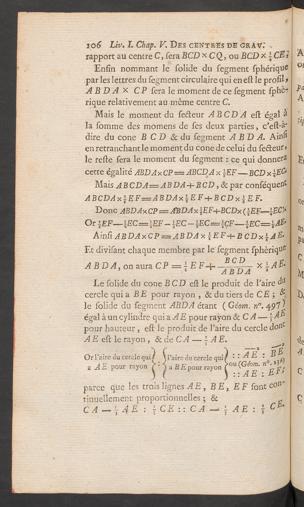 106 Liv. I. Chap. V. DES CENTRES DE GRAV.
rapport au centre C, sera BCD × CQ, ou BCD ×
Enfin nommant le solide du segment sphérique
par les lettres du segment circulaire qui en est le profil,
ABDA × CP sera le moment de ce segment sphé-
rique relativement au même centre C.
Mais le moment du secteur ABCDA est égal à
la somme des momens de ses deux parties, c'est-à-
dire du cone BCD & du segment ABDA. Ainsi
en retranchant le moment du cone de celui du secteur,
le reste sera le moment du segment : ce qui donnera
cette égalité ABDA×CP=ABCDA×½EF—BCD×
Mais ABCDA=ABDA+BCD, & par conséquent
ABCDA×½EF=ABDA×½EF+BCD×½EF.
Donc ABDA×CP=ABDA×½EF+BCD×
Or
Ainsi ABDA×CP=ABDA×½EF+BCD×¼AE.
Et divisant chaque membre par le segment sphérique
ABDA, on aura CP=½EF+ BCD/ABDA ×¼AE.
Le solide du cone BCD est le produit de l'aire du
cercle qui a BE pour rayon, & du tiers de CE ; &
le solide du segment ABDA étant (Géom. n°. 497)
égal à un cylindre qui a AE pour rayon & CA—⅓AE
pour hauteur, est le produit de l'aire du cercle dont
AE est le rayon, & de CA—⅓AE.
Or l'aire du cercle qui a AE pour rayon : l'aire du cercle qui a BE pour rayon :: AE : BE
ou (Géom. n°.
:: AE : EF ;
parce que les trois lignes AE, BE, EF sont con-
tinuellement proportionnelles ; &
CA—⅓AE : ⅓CE :: CA—⅓AE : ⅓CE.